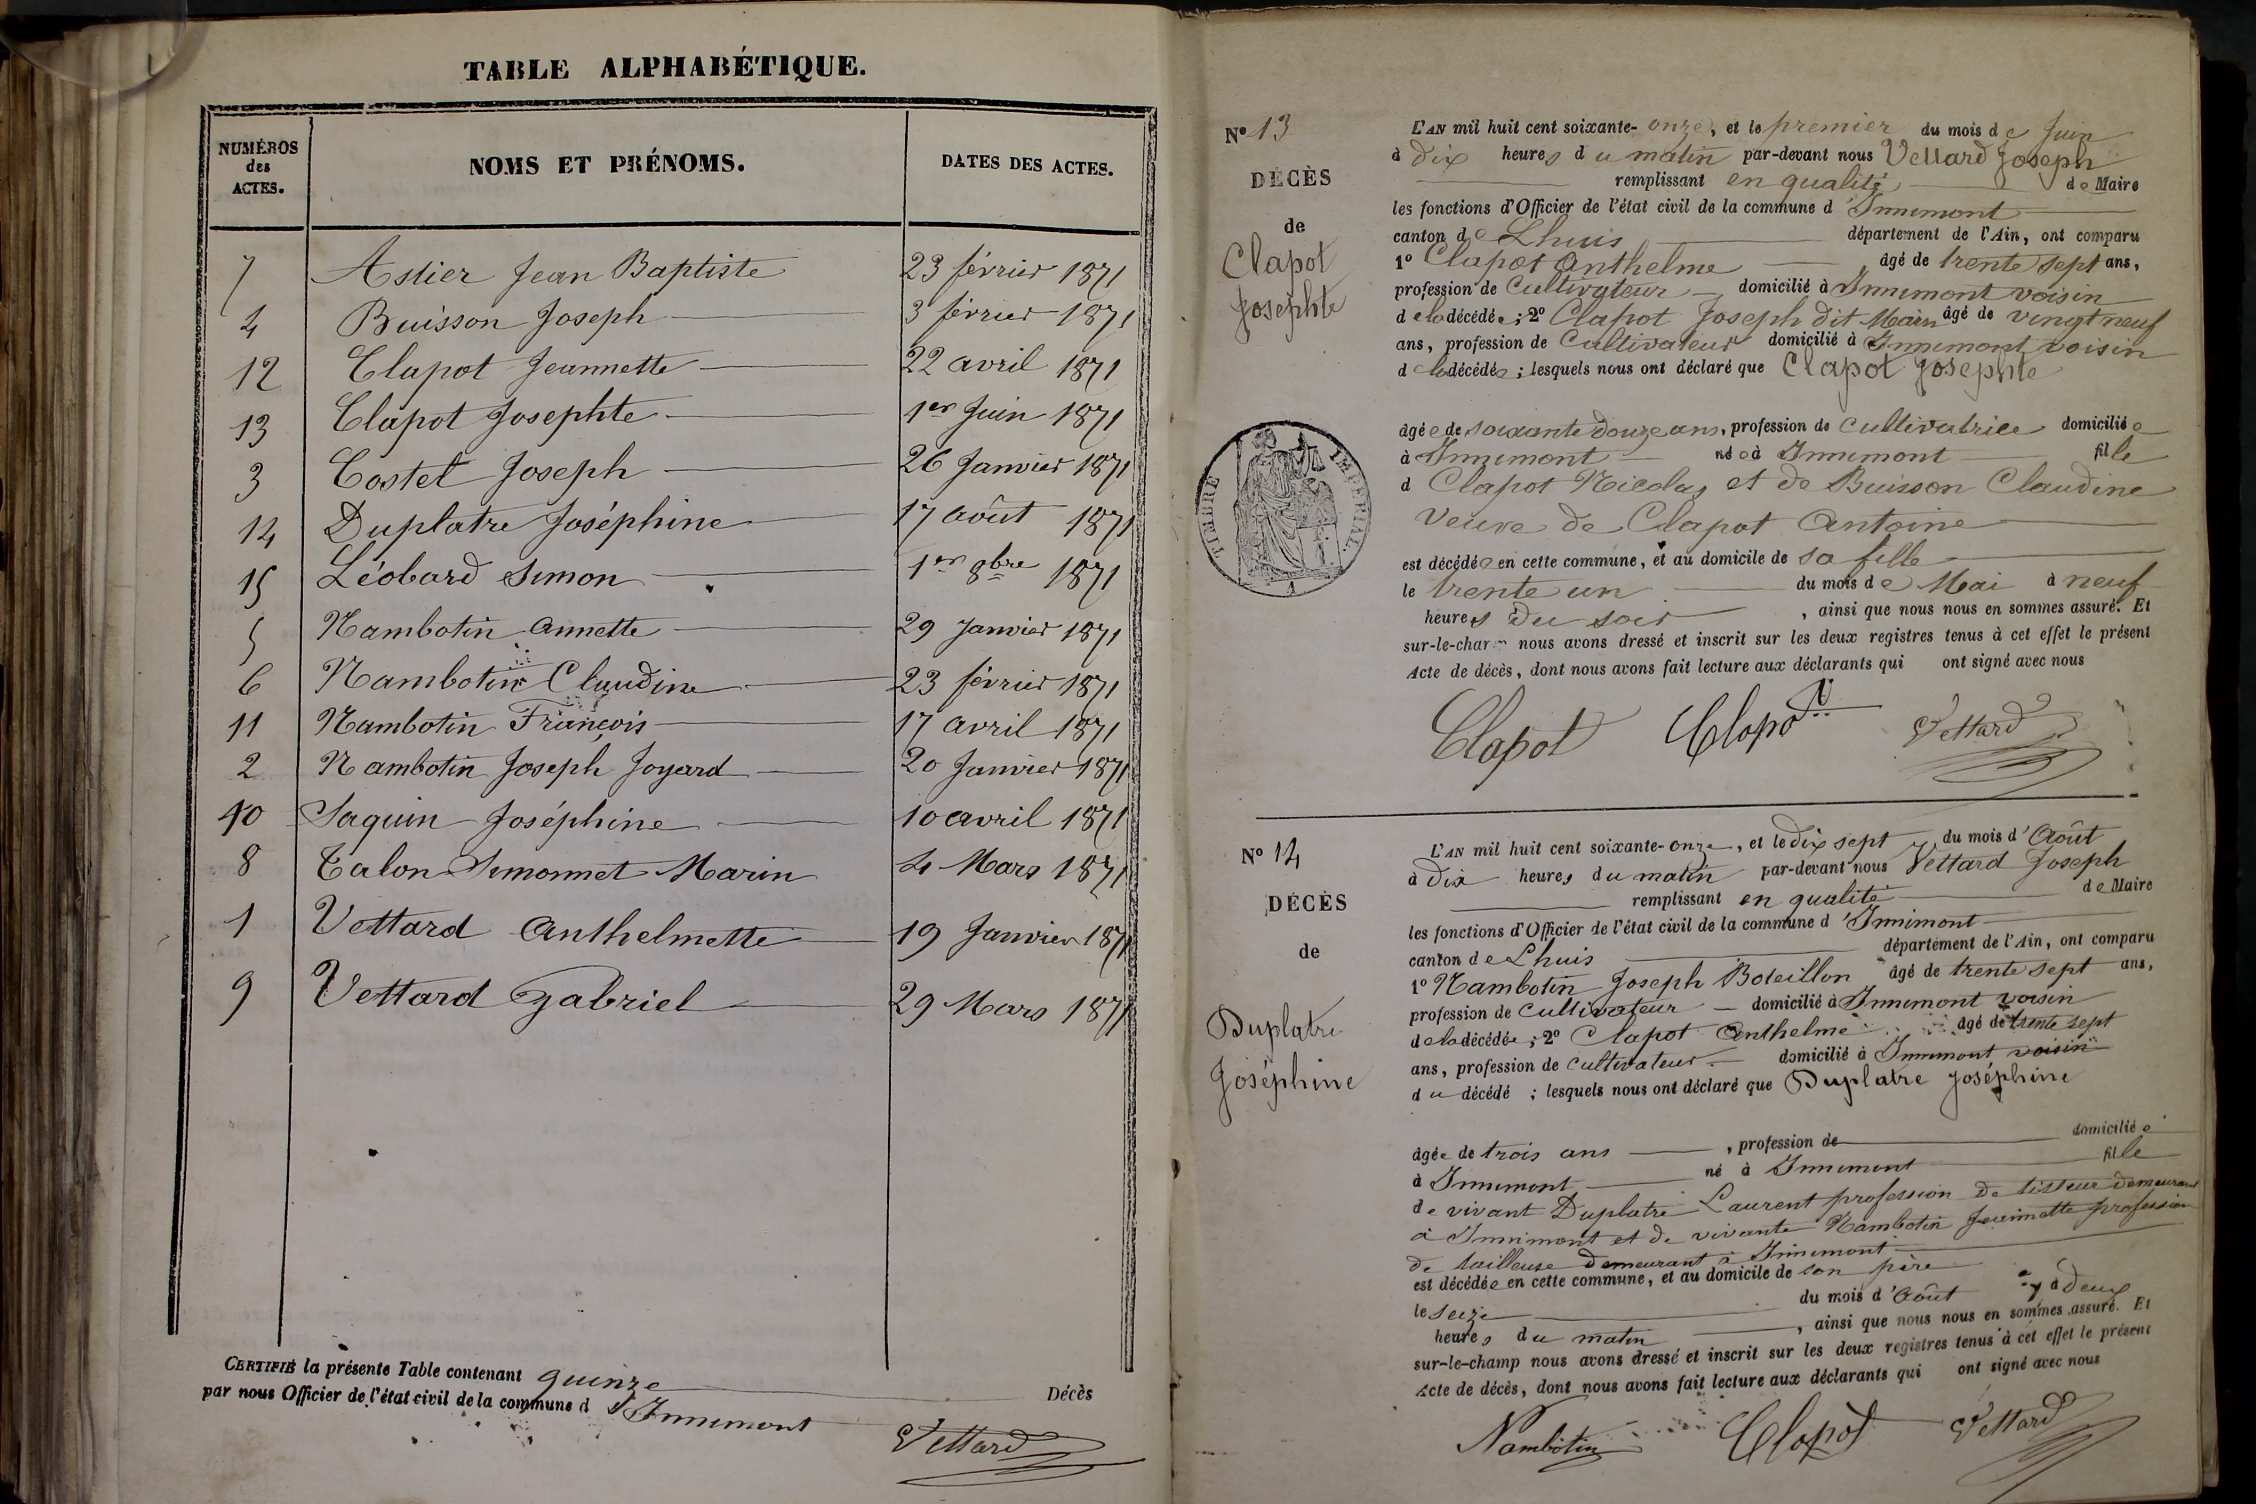 TABLE ALPHABÉTIQUE.
NUMÉROS des ACTES. NOMS ET PRÉNOMS. DATES DES ACTES.
7 Astier Jean Baptiste 23 février 1871
4 Buisson Joseph 3 février 1871
12 Clapot Jeannette 22 avril 1871
13 Clapot Josephte 1er Juin 1871
3 Costet Joseph 26 Janvier 1871
14 Duplatre Joséphine 17 août 1871
15 Léobard Simon 1er 9bre 1871
5 Nambotin Annette 29 Janvier 1871
6 Nambotin Claudine 23 février 1871
11 Nambotin François 17 avril 1871
2 Nambotin Joseph Joyard 20 Janvier 1871
10 Saquin Joséphine 10 avril 1871
8 Talon Simonnet Marin 4 Mars 1871
1 Vettard Anthelmette 19 Janvier 1871
9 Vettard Gabriel 29 Mars 1871
CERTIFIÉ la présente Table contenant quinze Décès
par nous Officier de l'état civil de la commune d'Innimont
Vettard
N° 13
DÉCÈS
de
Clapot
Josephte
TIMBRE IMPÉRIAL.
A
L'AN mil huit cent soixante-onze, et le premier du mois de Juin
à dix heures du matin par-devant nous Vettard Joseph
remplissant en qualité de Maire
les fonctions d'Officier de l'état civil de la commune d'Innimont
canton de Lhuis département de l'Ain, ont comparu
1° Clapot Anthelme âgé de trente sept ans,
profession de Cultivateur domicilié à Innimont voisin
de la décédée; 2° Clapot Joseph dit Marin âgé de vingt neuf
ans, profession de Cultivateur domicilié à Innimont voisin
de la décédée; lesquels nous ont déclaré que Clapot Josephte
âgée de soixante douze ans, profession de cultivatrice domiciliée
à Innimont née à Innimont fille
d Clapot Nicolas et de Buisson Claudine
veuve de Clapot Antoine
est décédée en cette commune, et au domicile de sa fille
le trente un du mois de Mai à neuf
heures du soir, ainsi que nous nous en sommes assuré. Et
sur-le-champ nous avons dressé et inscrit sur les deux registres tenus à cet effet le présent
Acte de décès, dont nous avons fait lecture aux déclarants qui ont signé avec nous
Clapot Clapot Vettard
N° 14
DÉCÈS
de
Duplatre
Joséphine
L'AN mil huit cent soixante-onze, et le dix sept du mois d'Août
à dix heures du matin par-devant nous Vettard Joseph
remplissant en qualité de Maire
les fonctions d'Officier de l'état civil de la commune d'Innimont
canton de Lhuis département de l'Ain, ont comparu
1° Nambotin Joseph Boteillon âgé de trente sept ans,
profession de cultivateur domicilié à Innimont voisin
de la décédée; 2° Clapot Anthelme âgé de trente sept
ans, profession de cultivateur domicilié à Innimont voisin
du décédé; lesquels nous ont déclaré que Duplatre Joséphine
âgée de trois ans, profession de domiciliée
à Innimont né à Innimont fille
de vivant Duplatre Laurent profession de tisseur demeurant
à Innimont et de vivante Nambotin Jeannette profession
de tailleuse demeurant à Innimont
est décédée en cette commune, et au domicile de son père
le seize du mois d'Août à deux
heures du matin, ainsi que nous nous en sommes assuré. Et
sur-le-champ nous avons dressé et inscrit sur les deux registres tenus à cet effet le présent
Acte de décès, dont nous avons fait lecture aux déclarants qui ont signé avec nous
Nambotin Clapot Vettard